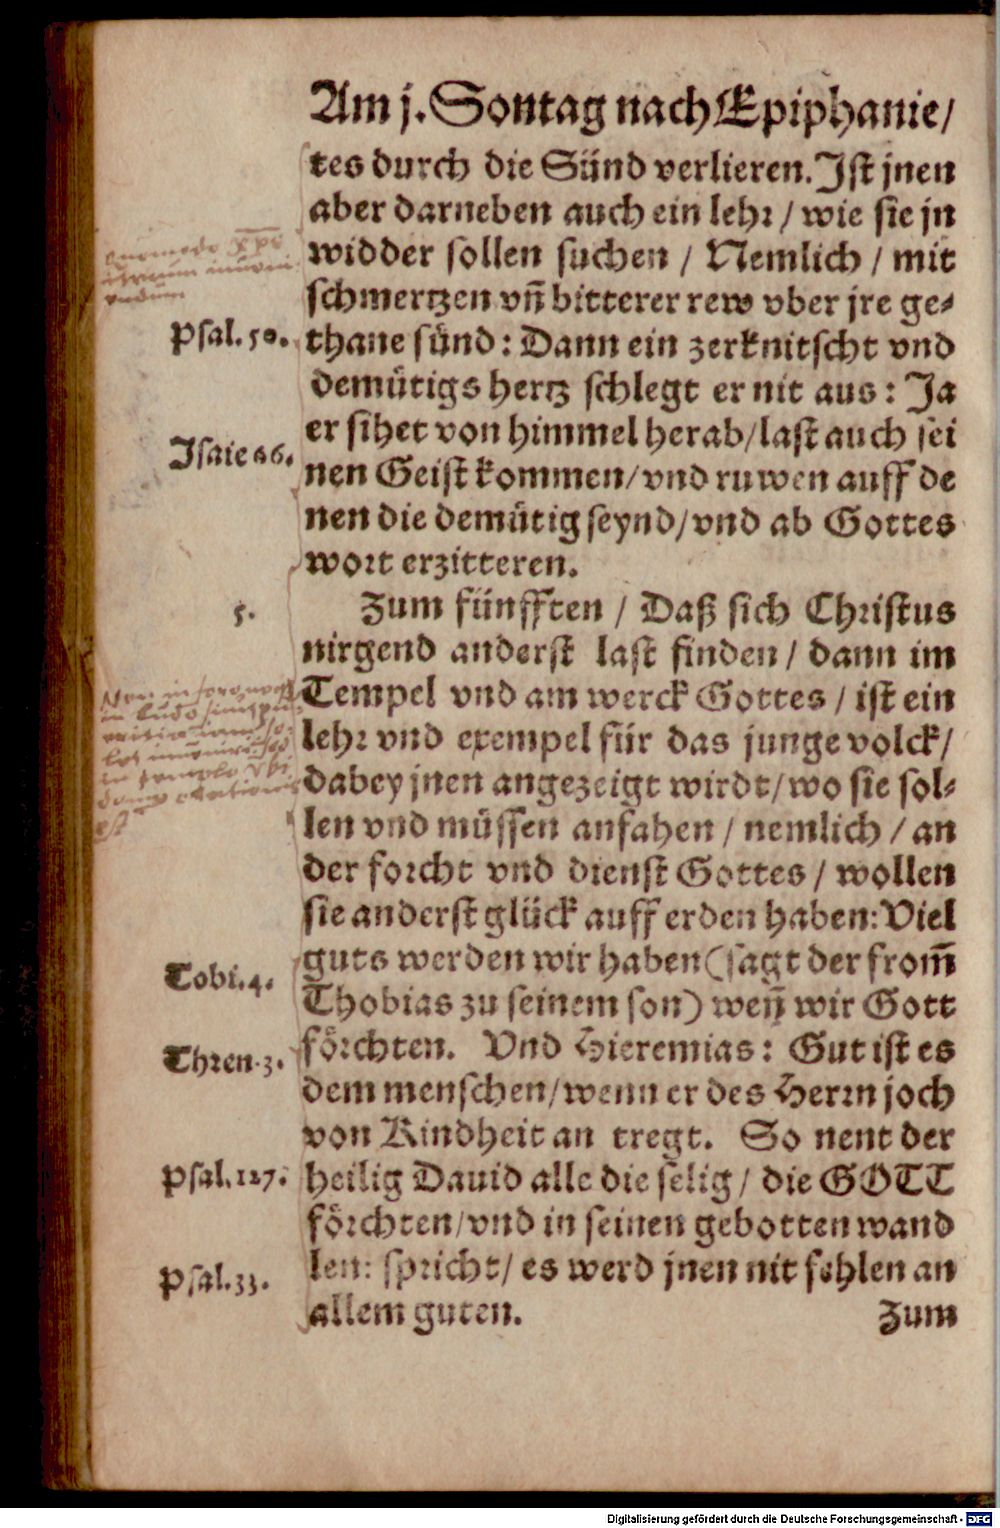 Am j. Sontag nach Epiphanie/
tes durch die Sünd verlieren. Jst jnen
aber darneben auch ein lehr / wie sie jn
widder sollen suchen / Nemlich / mit
schmertzen vñ bitterer rew vber jre ge-
Psal. 50.
thane sünd: Dann ein zerknitscht vnd
demütigs hertz schlegt er nit aus: Ja
er sihet von himmel herab/last auch sei
Isaie 66.
nen Geist kommen/vnd ruwen auff de
nen die demütig seynd/vnd ab Gottes
wort erzitteren.
5.
Zum fünfften / Daß sich Christus
nirgend anderst last finden / dann im
Tempel vnd am werck Gottes / ist ein
lehr vnd exempel für das junge volck/
dabey jnen angezeigt wirdt/wo sie sol-
len vnd müssen anfahen / nemlich / an
der forcht vnd dienst Gottes / wollen
sie anderst glück auff erden haben: Viel
guts werden wir haben (sagt der from̃
Tobi. 4.
Thobias zu seinem son) weñ wir Gott
förchten. Vnd Hieremias: Gut ist es
Thren. 3.
dem menschen/wenn er des Herrn joch
von Kindheit an tregt. So nent der
Psal. 127.
heilig Dauid alle die selig / die GOTT
förchten/vnd in seinen gebotten wand
len: spricht/ es werd jnen nit fehlen an
Psal. 33.
allem guten.
Zum
Digitalisierung gefördert durch die Deutsche Forschungsgemeinschaft - DFG